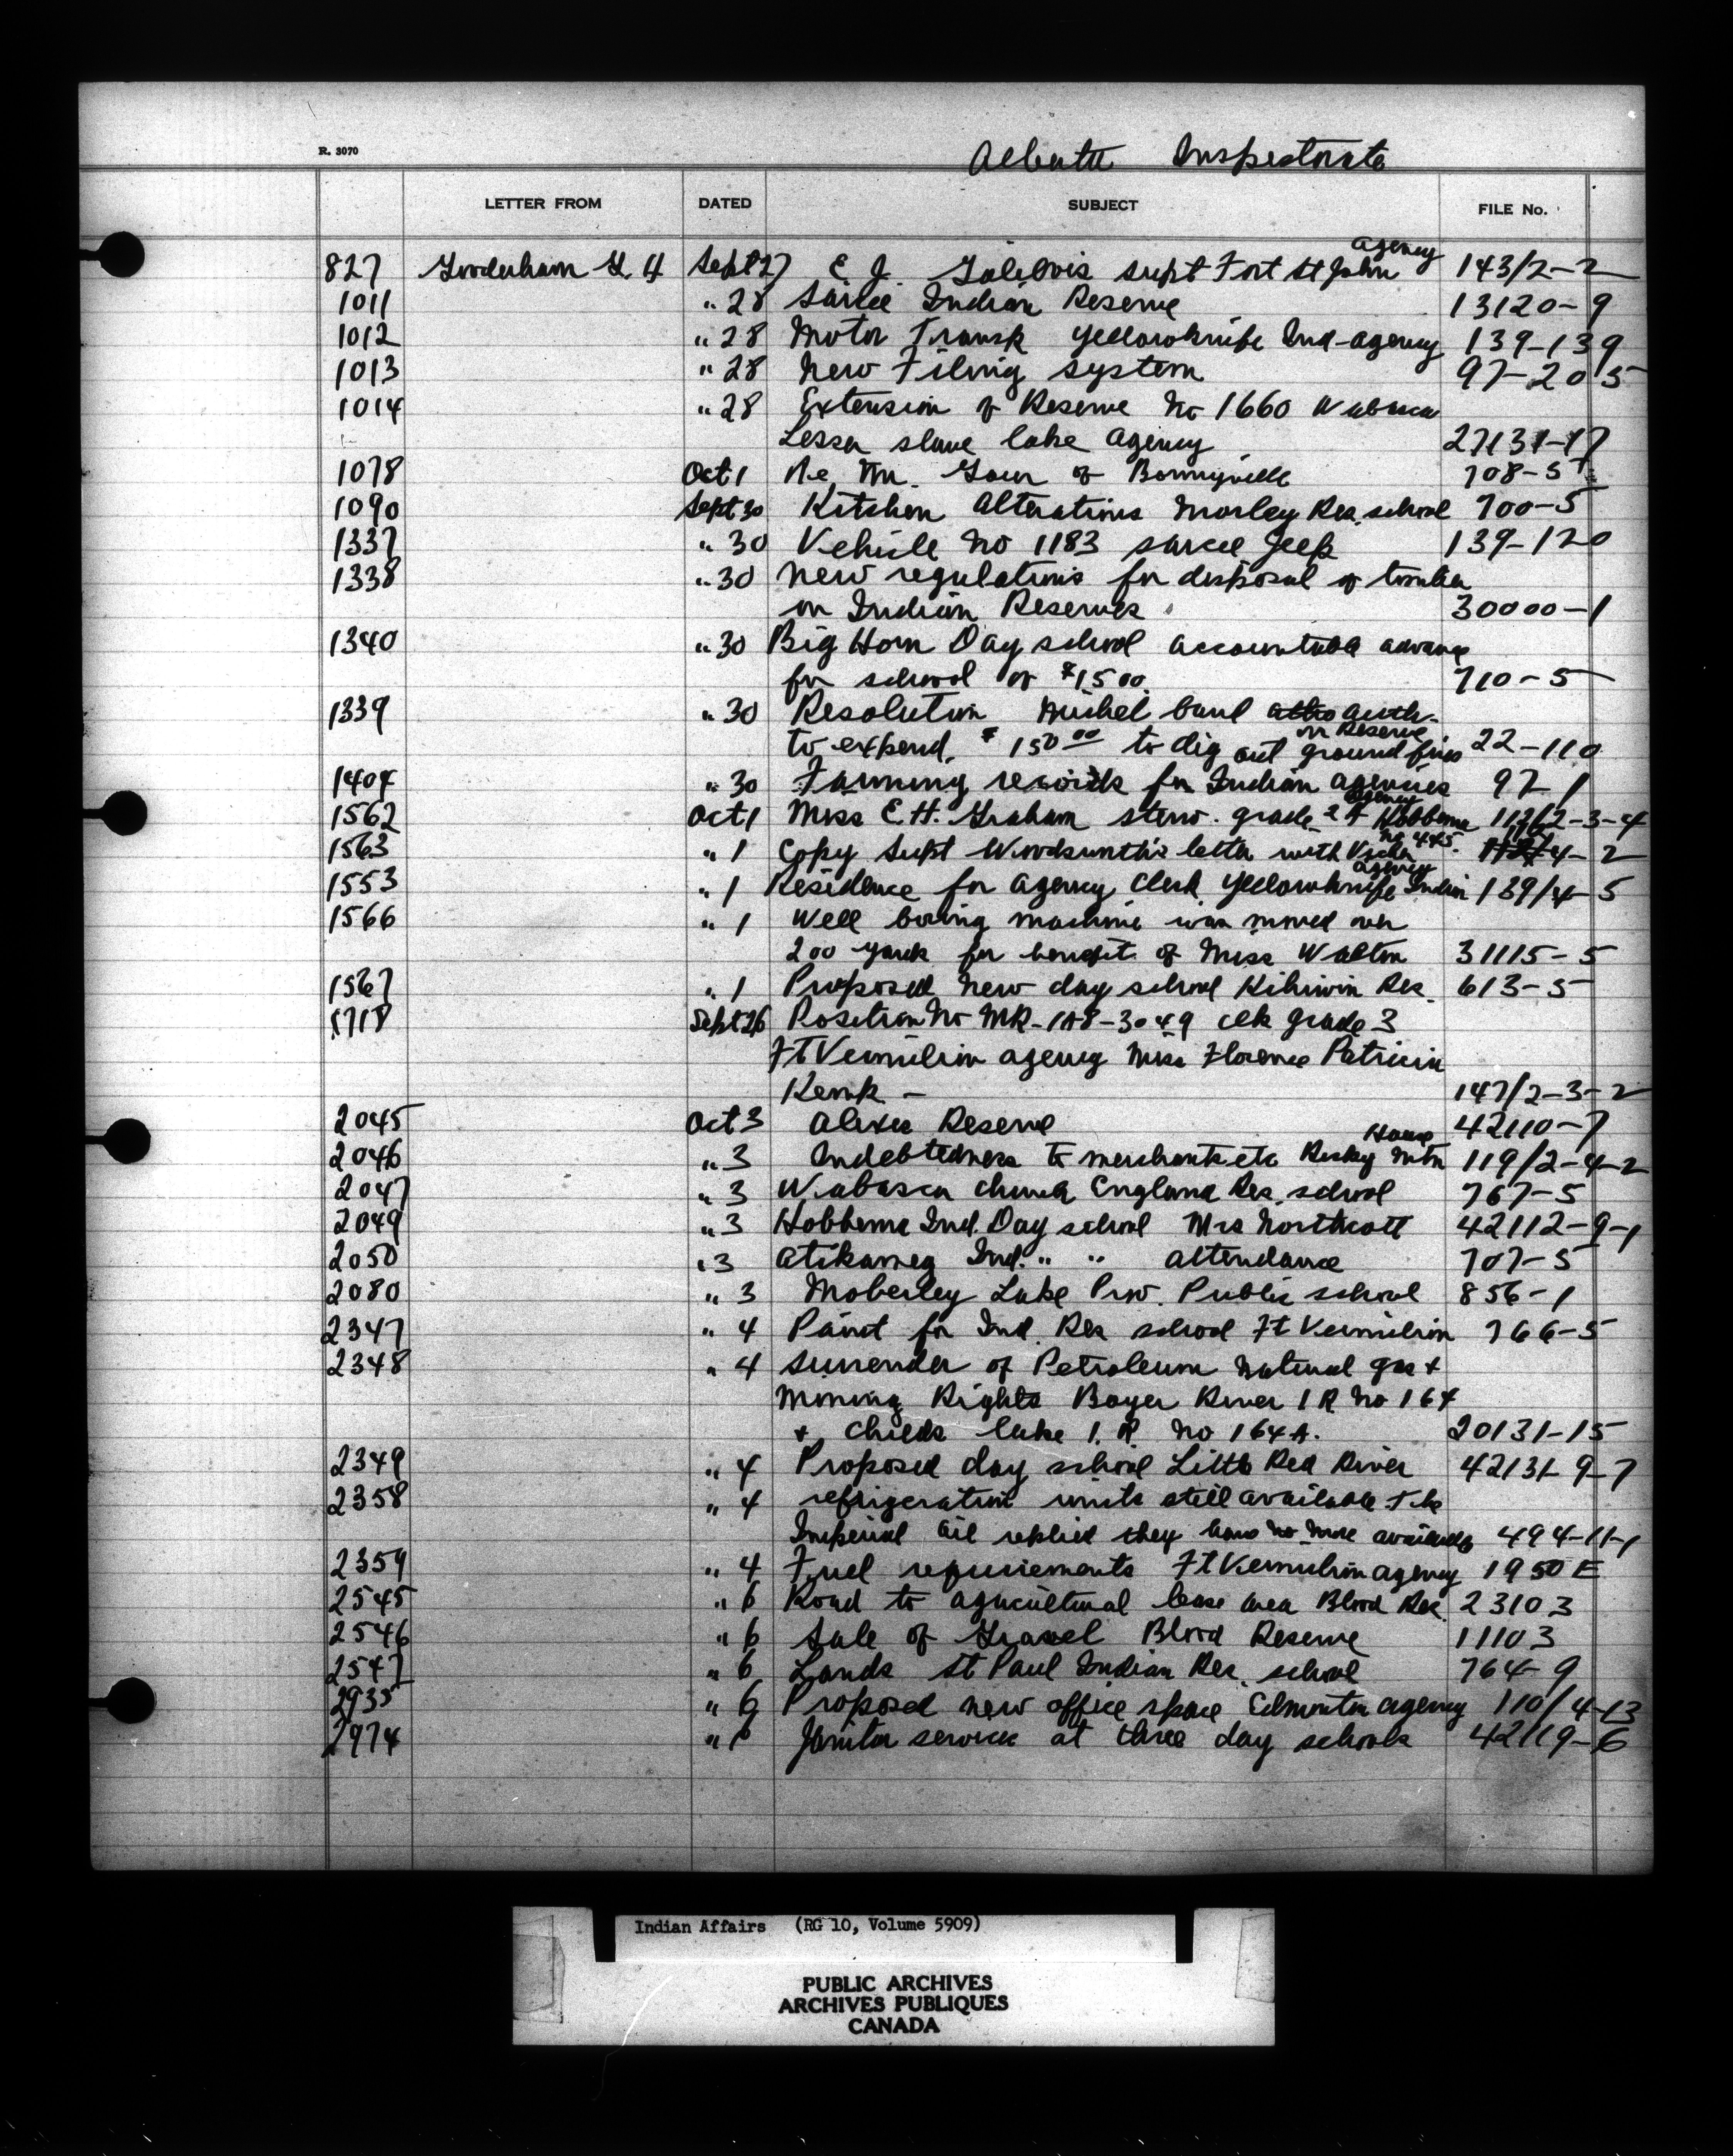 R. 3070
Alberta Inspectorate
LETTER FROM DATED SUBJECT FILE No.
Agency
827 Gooderham G. H Sept 27 E J. Galibois supt Fort St John 143/2-2
1011 " 28 Sarcee Indian Reserve 13120-9
1012 " 28 Motor Transp Yellowknife Ind-agency 139-139
1013 " 28 New Filing system 97-205
1014 " 28 Extension of Reserve No 1660 Wabasca
Lesser slave lake Agency 27131-17
1078 Oct 1 Re, Mr. of Bonnyville 708-5
1090 Sept 30 Kitchen Alterations Morley Res. school 700-5
1337 " 30 Vehicle No 1183 sarcee Jeep 139-120
1338 " 30 New regulations for disposal of timber
on Indian Reserves 30000-1
1340 " 30 Big Horn Day school accountable advance
for school of $15 00 710-5
1339 " 30 Resolution Michel band auth-
on Reserve
to expend $150 00 to dig out ground fires 22-110
1404 " 30 Farming records for Indian agencies 97-1
Agency
1562 Oct 1 Miss E. H. Graham steno. grade 2 A Hobbema 112/2-3-4
No 445
1563 " 1 Copy Supt letter with 4-2
agency
1553 " 1 Residence for agency clerk Yellowknife Indian 139/4-5
1566 " 1 Well boring machine was moved over
200 yards for benefit of Miss Walton 31115-5
1567 " 1 Proposed new day school Kihiwin Res. 613-5
1718 Sept 26 Position No MR-1A8-3049 clk grade 3
Ft Vermilion agency Miss Florence Patricia
Kemp - 147/2-3-2
2045 Oct 3 Alexis Reserve 42110-7
House
2046 " 3 Indebtedness to merchants etc Rocky Mtn 119/2-4-2
2047 " 3 Wabasca Church England Res. school 767-5
2049 " 3 Hobbema Ind. Day school Mrs Northcott 42112-9-1
2050 " 3 Atikameg Ind. " " attendance 707-5
2080 " 3 Moberley Lake Prov. Public school 856-1
2347 " 4 Paint for Ind. Res school Ft Vermilion 766-5
2348 " 4 surrender of Petroleum natural gas +
Mining Rights Boyer River I R No 164
+ Childs lake I. R No 164A. 20131-15
2349 " 4 Proposed day school Little Red River 42131-9-7
2358 " 4 refrigeration units still available The
Imperial Oil replied they have no more available 494-11-1
2359 " 4 Fuel requirements Ft Vermilion agency 1950 E
2545 " 6 Road to agricultural lease area Blood Res. 23103
2546 " 6 Sale of Gravel Blood Reserve 11103
2547 " 6 Lands St Paul Indian Res. school 764-9
2935 " 6 Proposed new office space Edmonton agency 110/4-13
2974 " 6 Janitor service at three day schools 42119-6
Indian Affairs (RG 10, Volume 5909)
PUBLIC ARCHIVES
ARCHIVES PUBLIQUES
CANADA